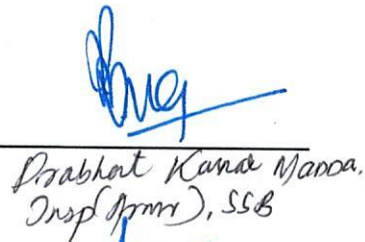 Prabhat Kumar Manna.
Insp(Armr), SSB